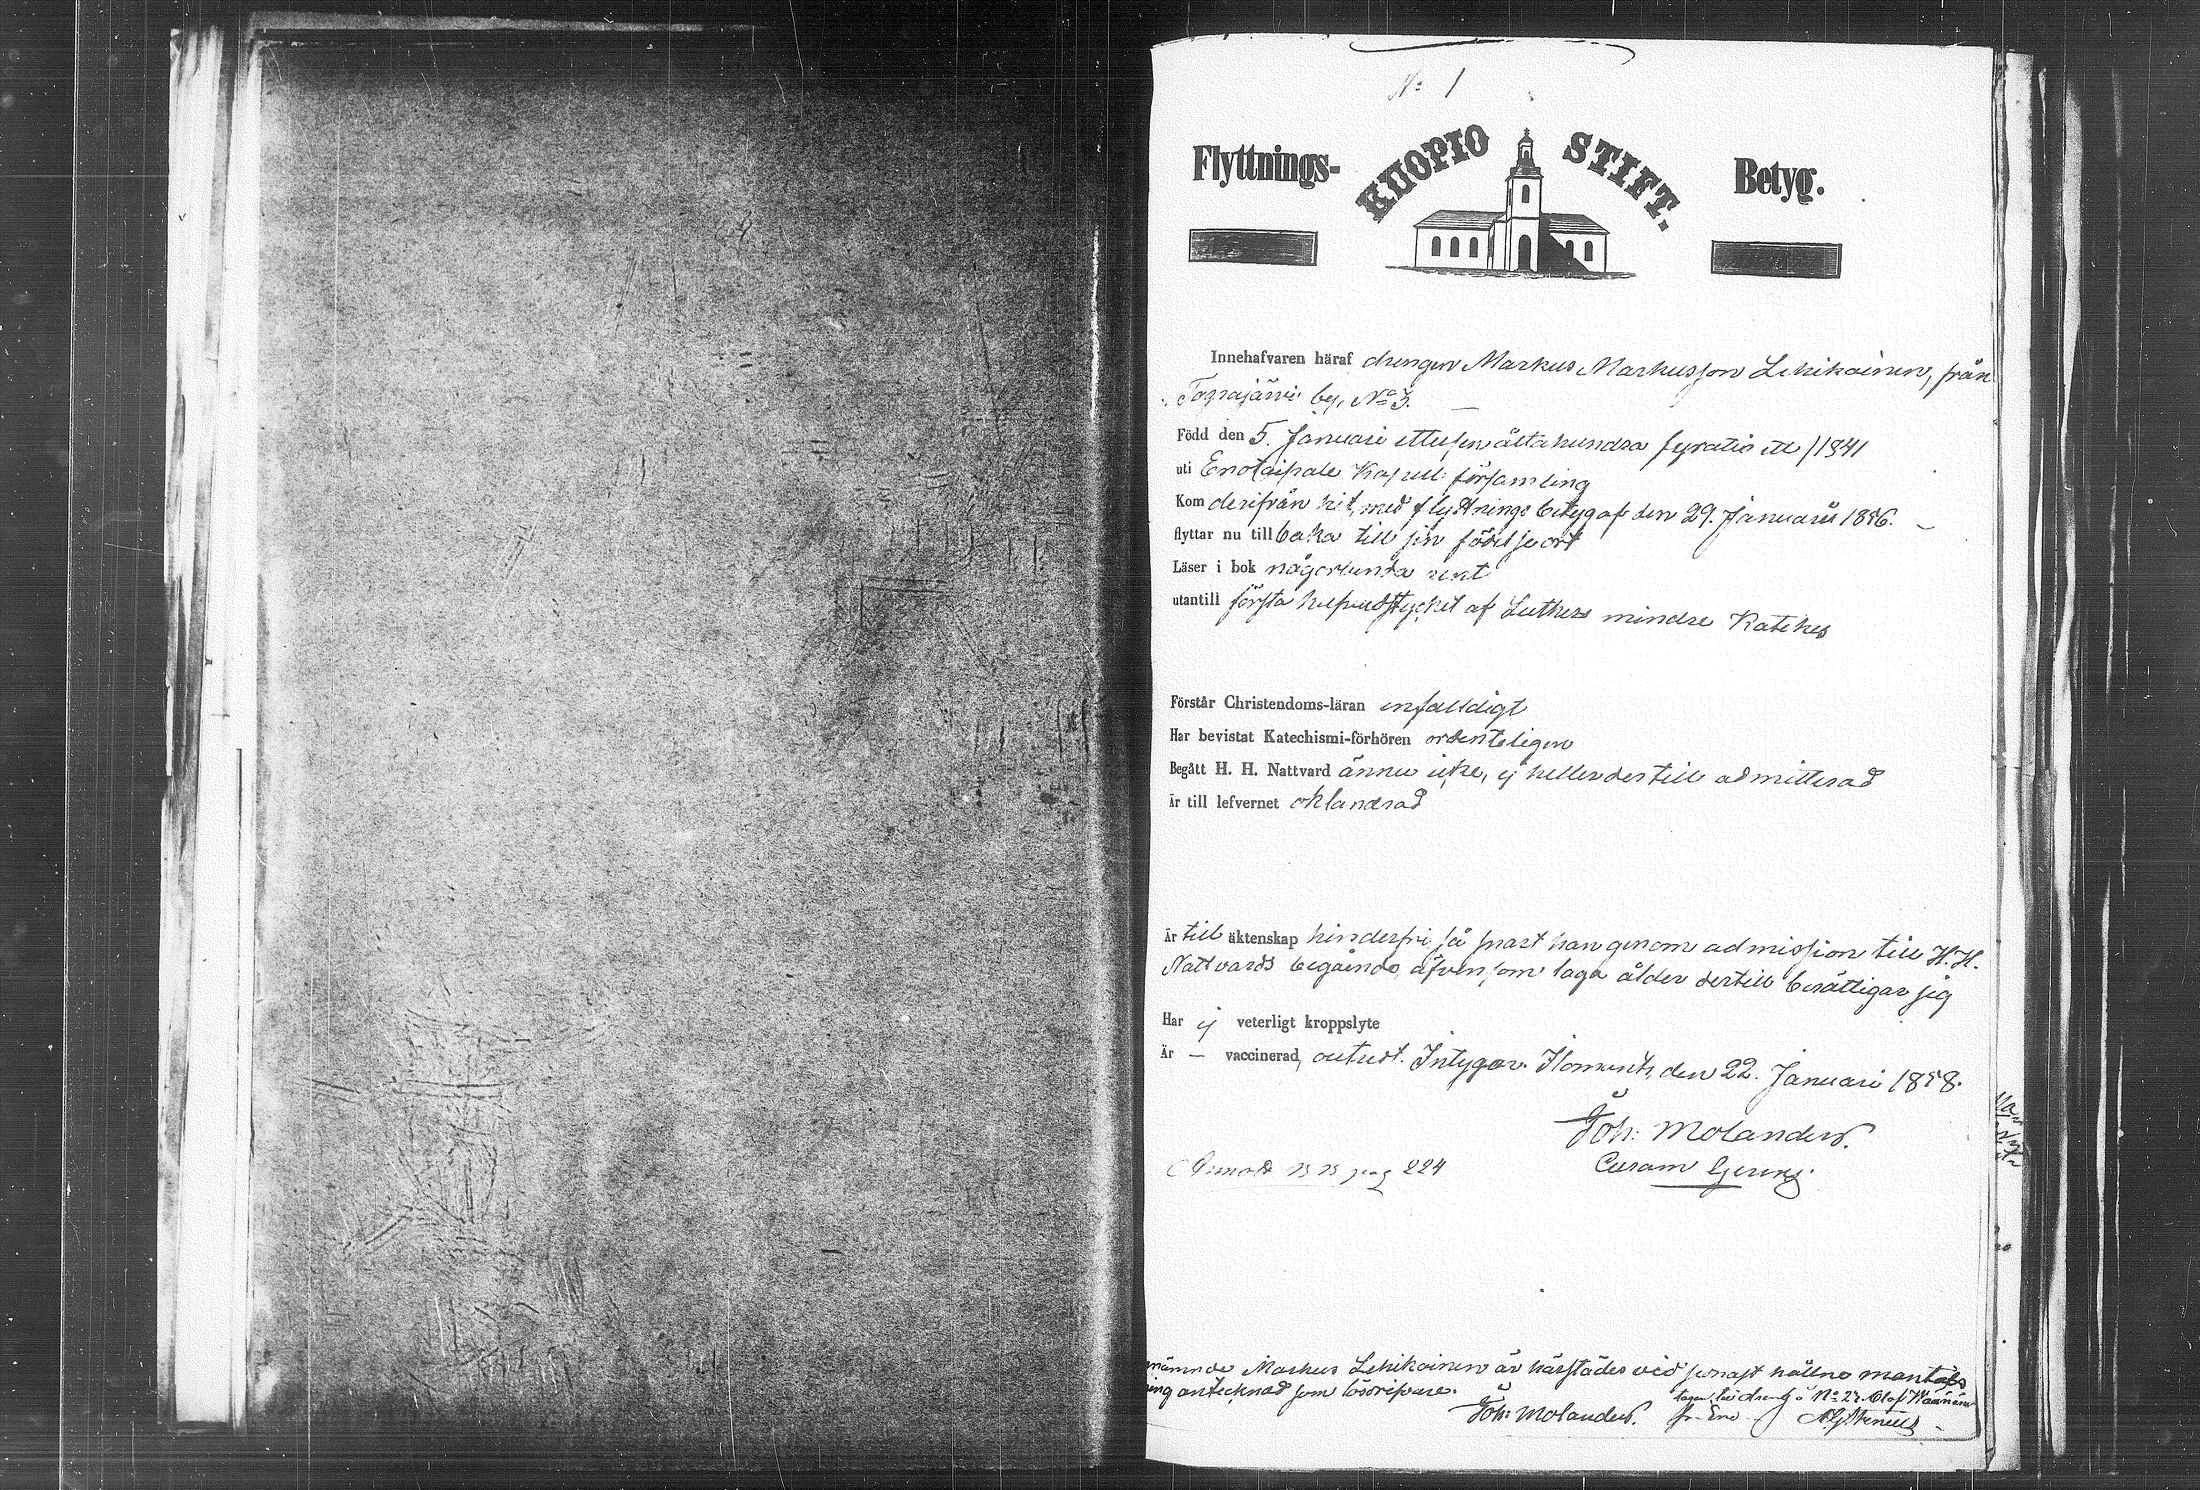 No 1
Flyttnings- KUOPIO STIFT. Betyg.
Innehafvaren häraf drengen Markus Markusson Lehikoinen, från
by, No 3.
Född den 5. Januari ettusen åtta hundra fyratio ett /1841
uti Enotaipale Kapell församling
Kom derifrån hit, med flyttnings betyg af den 29. Januari 1856.
flyttar nu till baka till sin födelse ort
Läser i bok någorlunda rent
utantill första hufvudstycket af Luthers mindre Katekes
Förstår Christendoms-läran enfalldigt
Har bevistat Katechismi-förhören ordenteligen
Begått H. H. Nattvard ännu icke, ej heller dertill admitterad
Är till lefvernet oklandrad
Är till äktenskap hinderfri, så snart han genom admission till H. H.
Nattvards begående, äfvensom laga ålder dertill berättigar sig
Har ej veterligt kroppslyte
Är — vaccinerad, Intygar. Ilomants, den 22. Januari 1858.
Joh: Molander.
Curam Gerens.
pag 224
nämnde Markus Lehikoinen är härstädes vid senast hållne mantals
ing antecknad som lösdrifvare.
Joh: Molander.
No 27. Olof